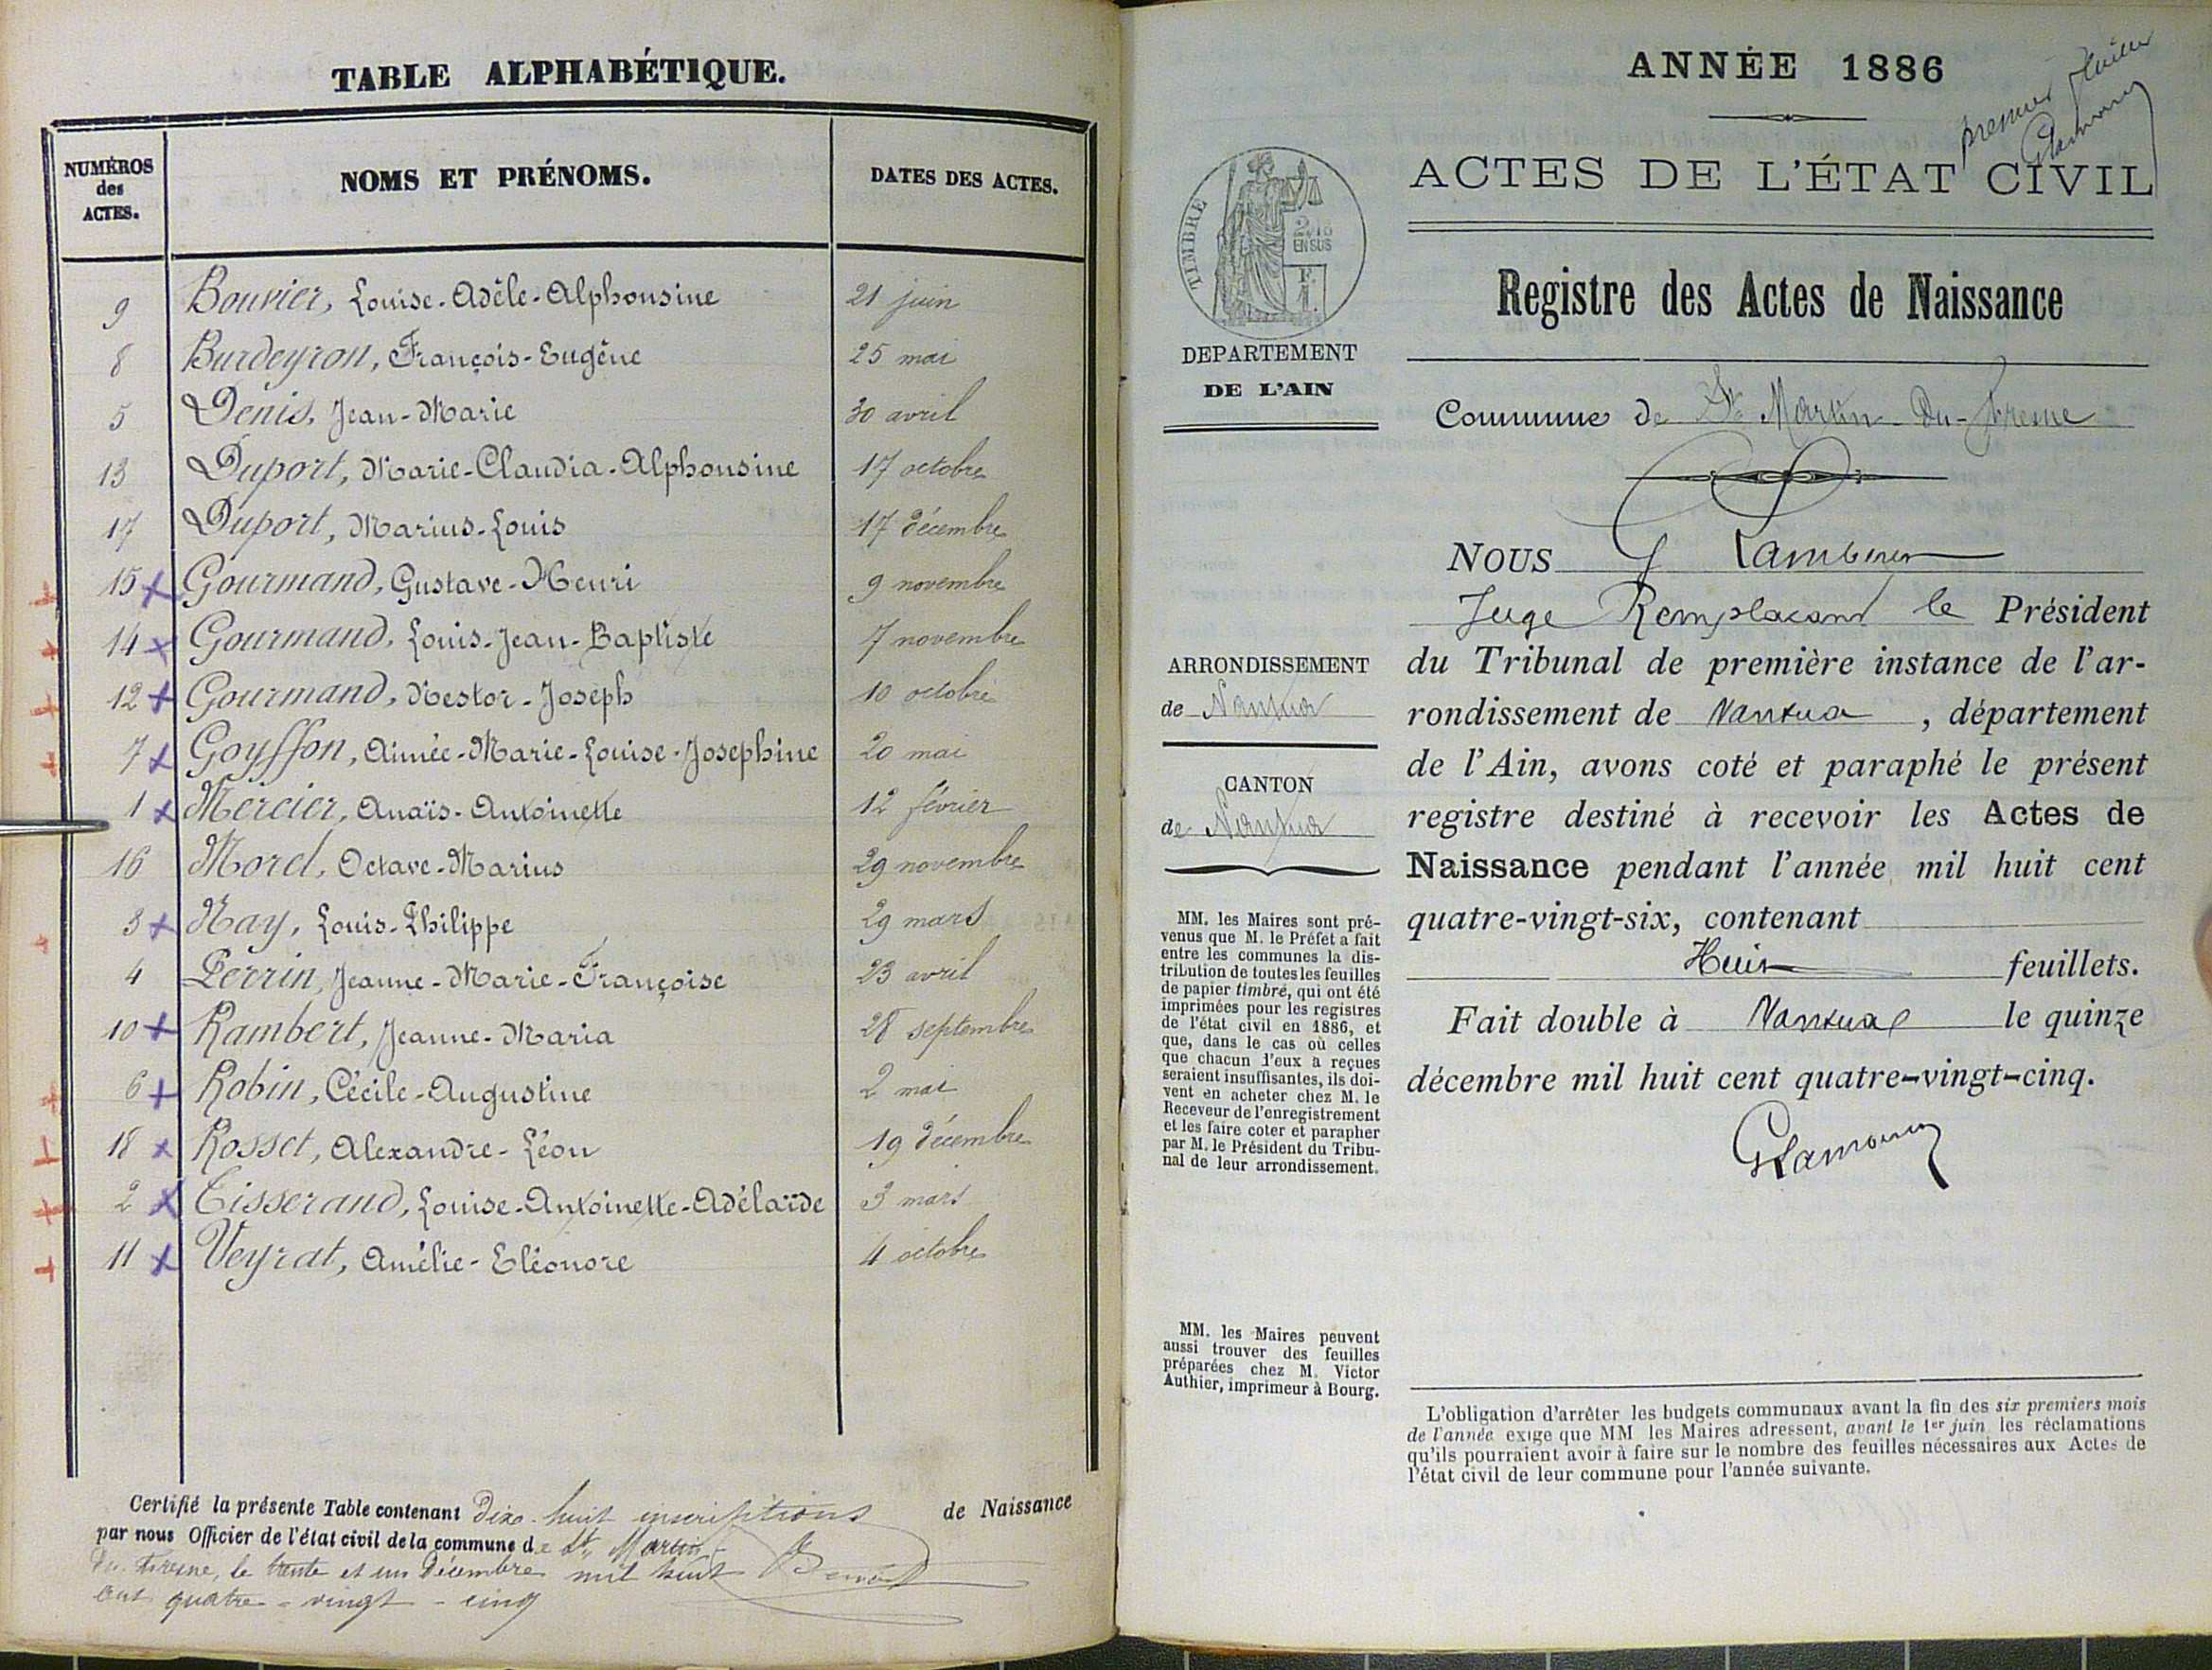 TABLE ALPHABÉTIQUE.
NUMÉROS
des
ACTES.
NOMS ET PRÉNOMS.
DATES DES ACTES.
9 Bouvier, Louise-Adèle-Alphonsine 21 juin
8 Burdeyron, François-Eugène 25 mai
5 Denis, Jean-Marie 30 avril
13 Duport, Marie-Claudia-Alphonsine 17 octobre
17 Duport, Marius-Louis 17 décembre
15 Gourmand, Gustave-Henri 9 novembre
14 Gourmand, Louis-Jean-Baptiste 7 novembre
12 Gourmand, Nestor-Joseph 10 octobre
7 Goyffon, Aimée-Marie-Louise-Josephine 20 mai
1 Mercier, Anaïs-Antoinette 12 février
16 Morel, Octave-Marius 29 novembre
3 Nay, Louis-Philippe 29 mars
4 Perrin, Jeanne-Marie-Françoise 23 avril
10 Rambert, Jeanne-Maria 28 septembre
6 Robin, Cécile-Augustine 2 mai
18 Rosset, Alexandre-Léon 19 décembre
2 Tisserand, Louise-Antoinette-Adélaïde 3 mars
11 Veyrat, Amélie-Eléonore 4 octobre
Certifié la présente Table contenant dix-huit inscriptions de Naissance
par nous Officier de l'état civil de la commune de St Martin
du Fresne, le trente et un Décembre mil huit
cent quatre-vingt-cinq
ANNÉE 1886
premier
ACTES DE L'ÉTAT CIVIL
TIMBRE
EN SUS
Registre des Actes de Naissance
DEPARTEMENT
DE L'AIN
Commune de St Martin-Du-Fresne
NOUS
Juge Remplaçant le Président
du Tribunal de première instance de l'ar-
rondissement de Nantua, département
de l'Ain, avons coté et paraphé le présent
registre destiné à recevoir les Actes de
Naissance pendant l'année mil huit cent
quatre-vingt-six, contenant
Huit feuillets.
Fait double à Nantua le quinze
décembre mil huit cent quatre-vingt-cinq.
ARRONDISSEMENT
de Nantua
CANTON
de Nantua
MM. les Maires sont pré-
venus que M. le Préfet a fait
entre les communes la dis-
tribution de toutes les feuilles
de papier timbré, qui ont été
imprimées pour les registres
de l'état civil en 1886, et
que, dans le cas où celles
que chacun d'eux a reçues
seraient insuffisantes, ils doi-
vent en acheter chez M. le
Receveur de l'enregistrement
et les faire coter et parapher
par M. le Président du Tribu-
nal de leur arrondissement.
MM. les Maires peuvent
aussi trouver des feuilles
préparées chez M. Victor
Authier, imprimeur à Bourg.
L'obligation d'arrêter les budgets communaux avant la fin des six premiers mois
de l'année exige que MM les Maires adressent, avant le 1er juin les réclamations
qu'ils pourraient avoir à faire sur le nombre des feuilles nécessaires aux Actes de
l'état civil de leur commune pour l'année suivante.